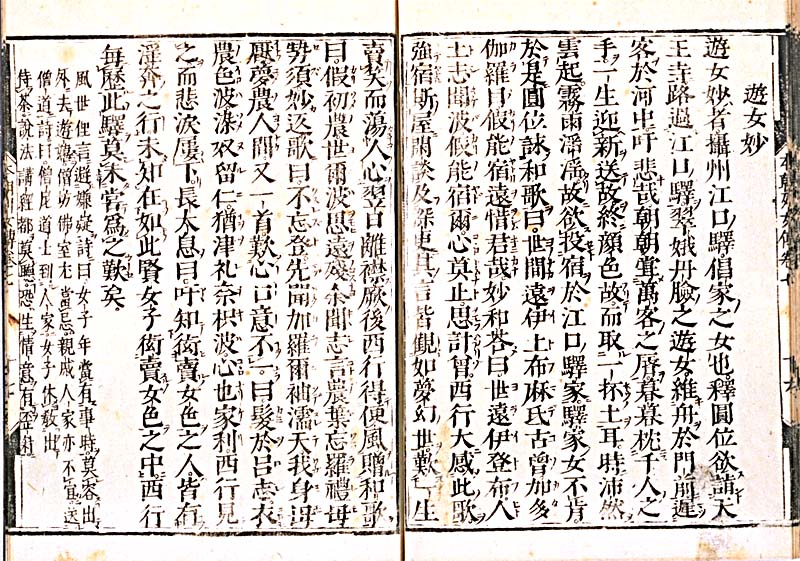 遊女妙
遊女妙者攝州江口驛倡家之女也釋圓位欲詣天
王寺路過江口驛翠娥丹臉之遊女維舟於門前遲
客於河中吁悲哉朝朝壹萬客之唇暮暮枕千人之
手一生迎新送故終顏色故而取一抔土耳時沛然
雲起霧雨滂滂故欲投宿於江口驛家驛家女不肯
於是圓位詠和歌曰世間遠伊上布麻氏古曾加多
伽羅目假能宿遠惜君哉妙和荅曰世遠伊登布人
土志聞波假能宿爾心莫止思計曾西行大感此歌
強宿斯屋閑談及深更其言皆觀如夢幻世歎一生
賣笑而蕩人心翌日離襟厥後西行得便風贈和歌
曰假初農世爾波思遠殘 聞志言農葉忘羅禮母
勢須妙返歌曰不忘登先聞加羅爾袖濡天我身
厭夢農人間又一首歎心口意不一曰髮於呂志衣
農色波染奴留仁猶津礼奈枳波心也家利西行見
之而悲淚屢下長太息曰吁知衒賣女色之人皆有
淫奔之行未知在如此賢女子衒賣女色之中西行
毎歷此驛莫未嘗爲之歎矣
風世俚言遊嫌疑詩曰女子年當有事時莫容出
外去遊嬉僧坊佛室尤當忌親戚人家亦不宜送
僧道詩曰僧尼道士到人家女子休敎出
侍茶說法講經都莫聽恐生情意有歪術